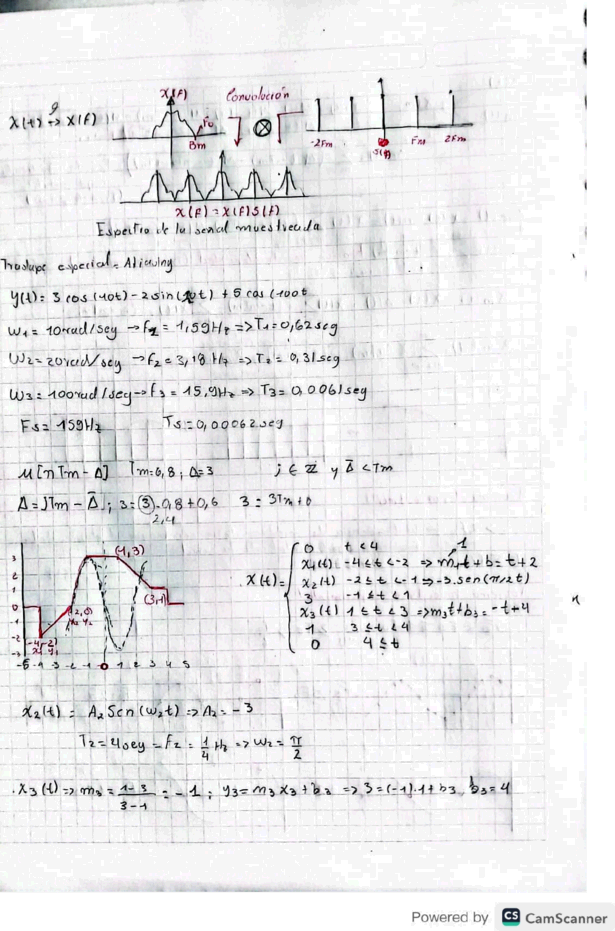 X(t) → X(f)
X(f)
Convolución
fo
Bm
-2Fm
S(f)
Fm
2Fm
X(f) = X(f)S(f)
Espectro de la señal muestreada
Traslape especial = Aliasing
y(t) = 3 cos(10t) - 2 sin(20t) + 5 cos(100t
W1 = 10 rad/seg → f1 = 1,59Hz => T1 = 0,62 seg
W2 = 20 rad/seg → f2 = 3,18 Hz => T2 = 0,31 seg
W3 = 100 rad/seg → f3 = 15,9Hz => T3 = 0,061 seg
Fs = 159Hz Ts = 0,0062 seg
μ[nTm - Δ] Tm = 0,8; Δ = 3 j ∈ Z y Δ̄ < Tm
Δ = JTm - Δ̄; 3 = (3)·0,8 + 0,6 3 = 3Tm + 0
2,4
3
2
1
0
-1
-2
-3
(1,3)
(3,1)
(-2,0)
x2 y2
(-4,-2)
x1 y1
-5 -4 -3 -2 -1 0 1 2 3 4 5
X(t) =
0 t < 4
x1(t) -4 ≤ t < -2 => m1t + b = t + 2
1
x2(t) -2 ≤ t < -1 => -3.sen(π/2t)
3 -1 ≤ t < 1
x3(t) 1 ≤ t < 3 => m3t + b3 = -t + 4
1 3 ≤ t < 4
0 4 ≤ t
X2(t) = A2 Sen(w2t) => A2 = -3
T2 = 4seg = F2 = 1/4 Hz => w2 = π/2
.X3(t) => m3 = 1-3/3-1 = -1; y3 = m3 x3 + b3 => 3 = (-1).1 + b3, b3 = 4
Powered by CS CamScanner